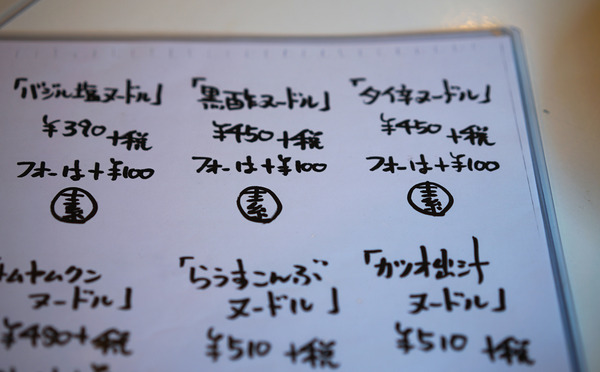 「バジル塩ヌードル」
¥390+税
フォーは+¥100
素
「黒酢ヌードル」
¥450+税
フォーは+¥100
素
「タイ辛ヌードル」
¥450+税
フォーは+¥100
素
ナムナムクン
ヌードル」
¥490+税
「らうすこんぶ
ヌードル」
¥510+税
「カツオ出汁
ヌードル」
¥510+税